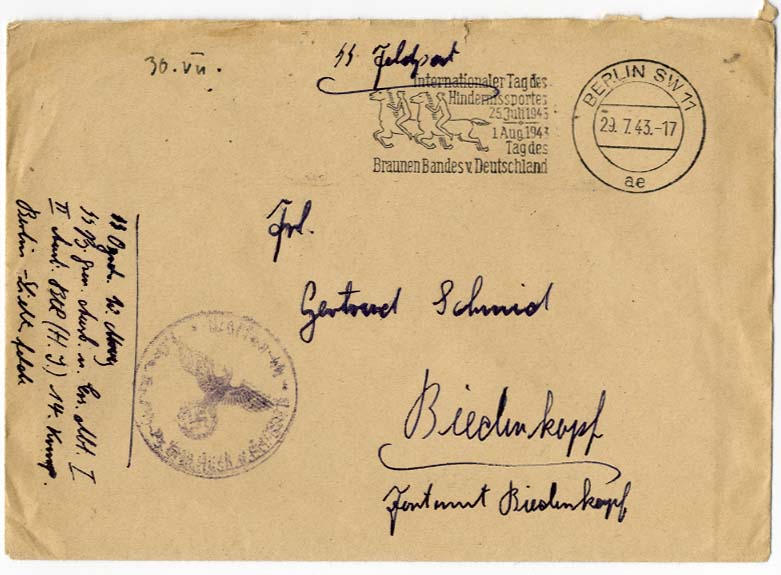 30. VII.
SS Feldpost
Internationaler Tag des
Hindernissportes
25. Juli 1943
1. Aug. 1943
Tag des
Braunen Bandes v. Deutschland
BERLIN SW 11
29. 7. 43.-17
ae
Frl.
Gertrud Schmid
Biedenkopf
Forstamt Biedenkopf
SS W.
SS Pz. Gren. Ausb. u. Ers. Abt. I
II (H.J.) 14. Komp.
Berlin-Lichterfelde
Waffen-SS